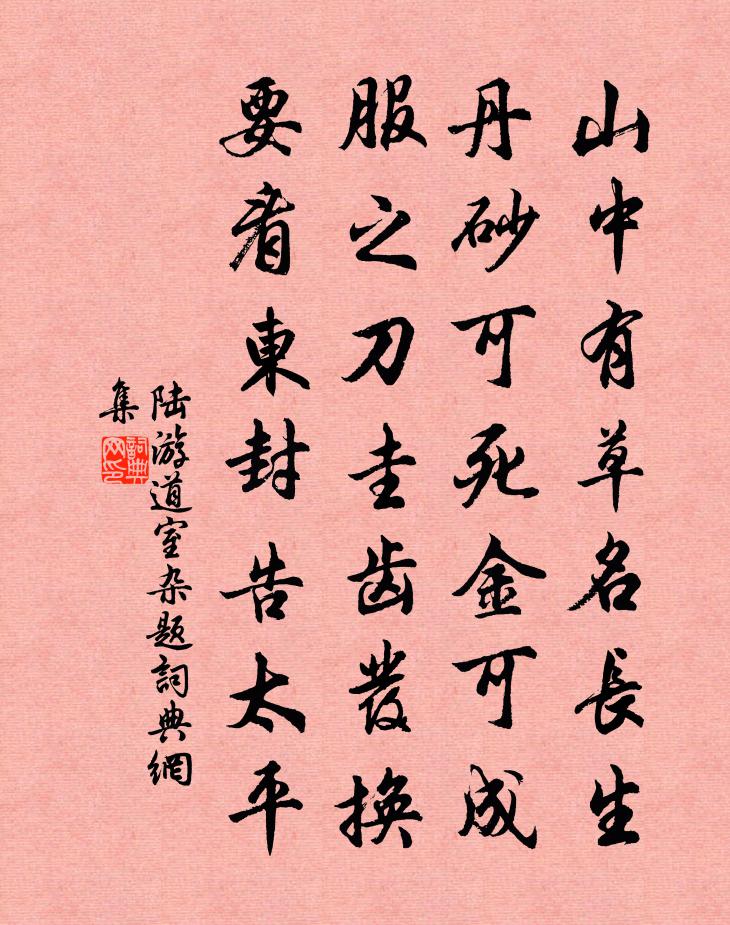 山中有草名長生
丹砂可死金可成
服之刀圭齿發換
要看東封告太平
陆游道室杂题詞典網
集
詞典
网印